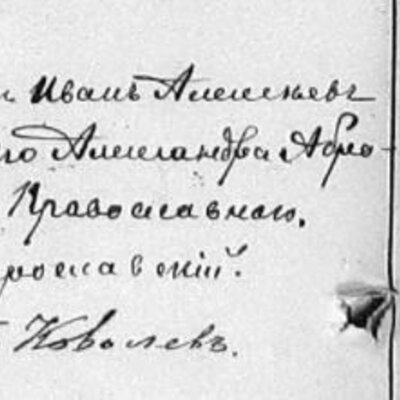 Иванъ Алексѣевъ
го Александра Абро-
Православнаго.
рославскій.
Ковалевъ.